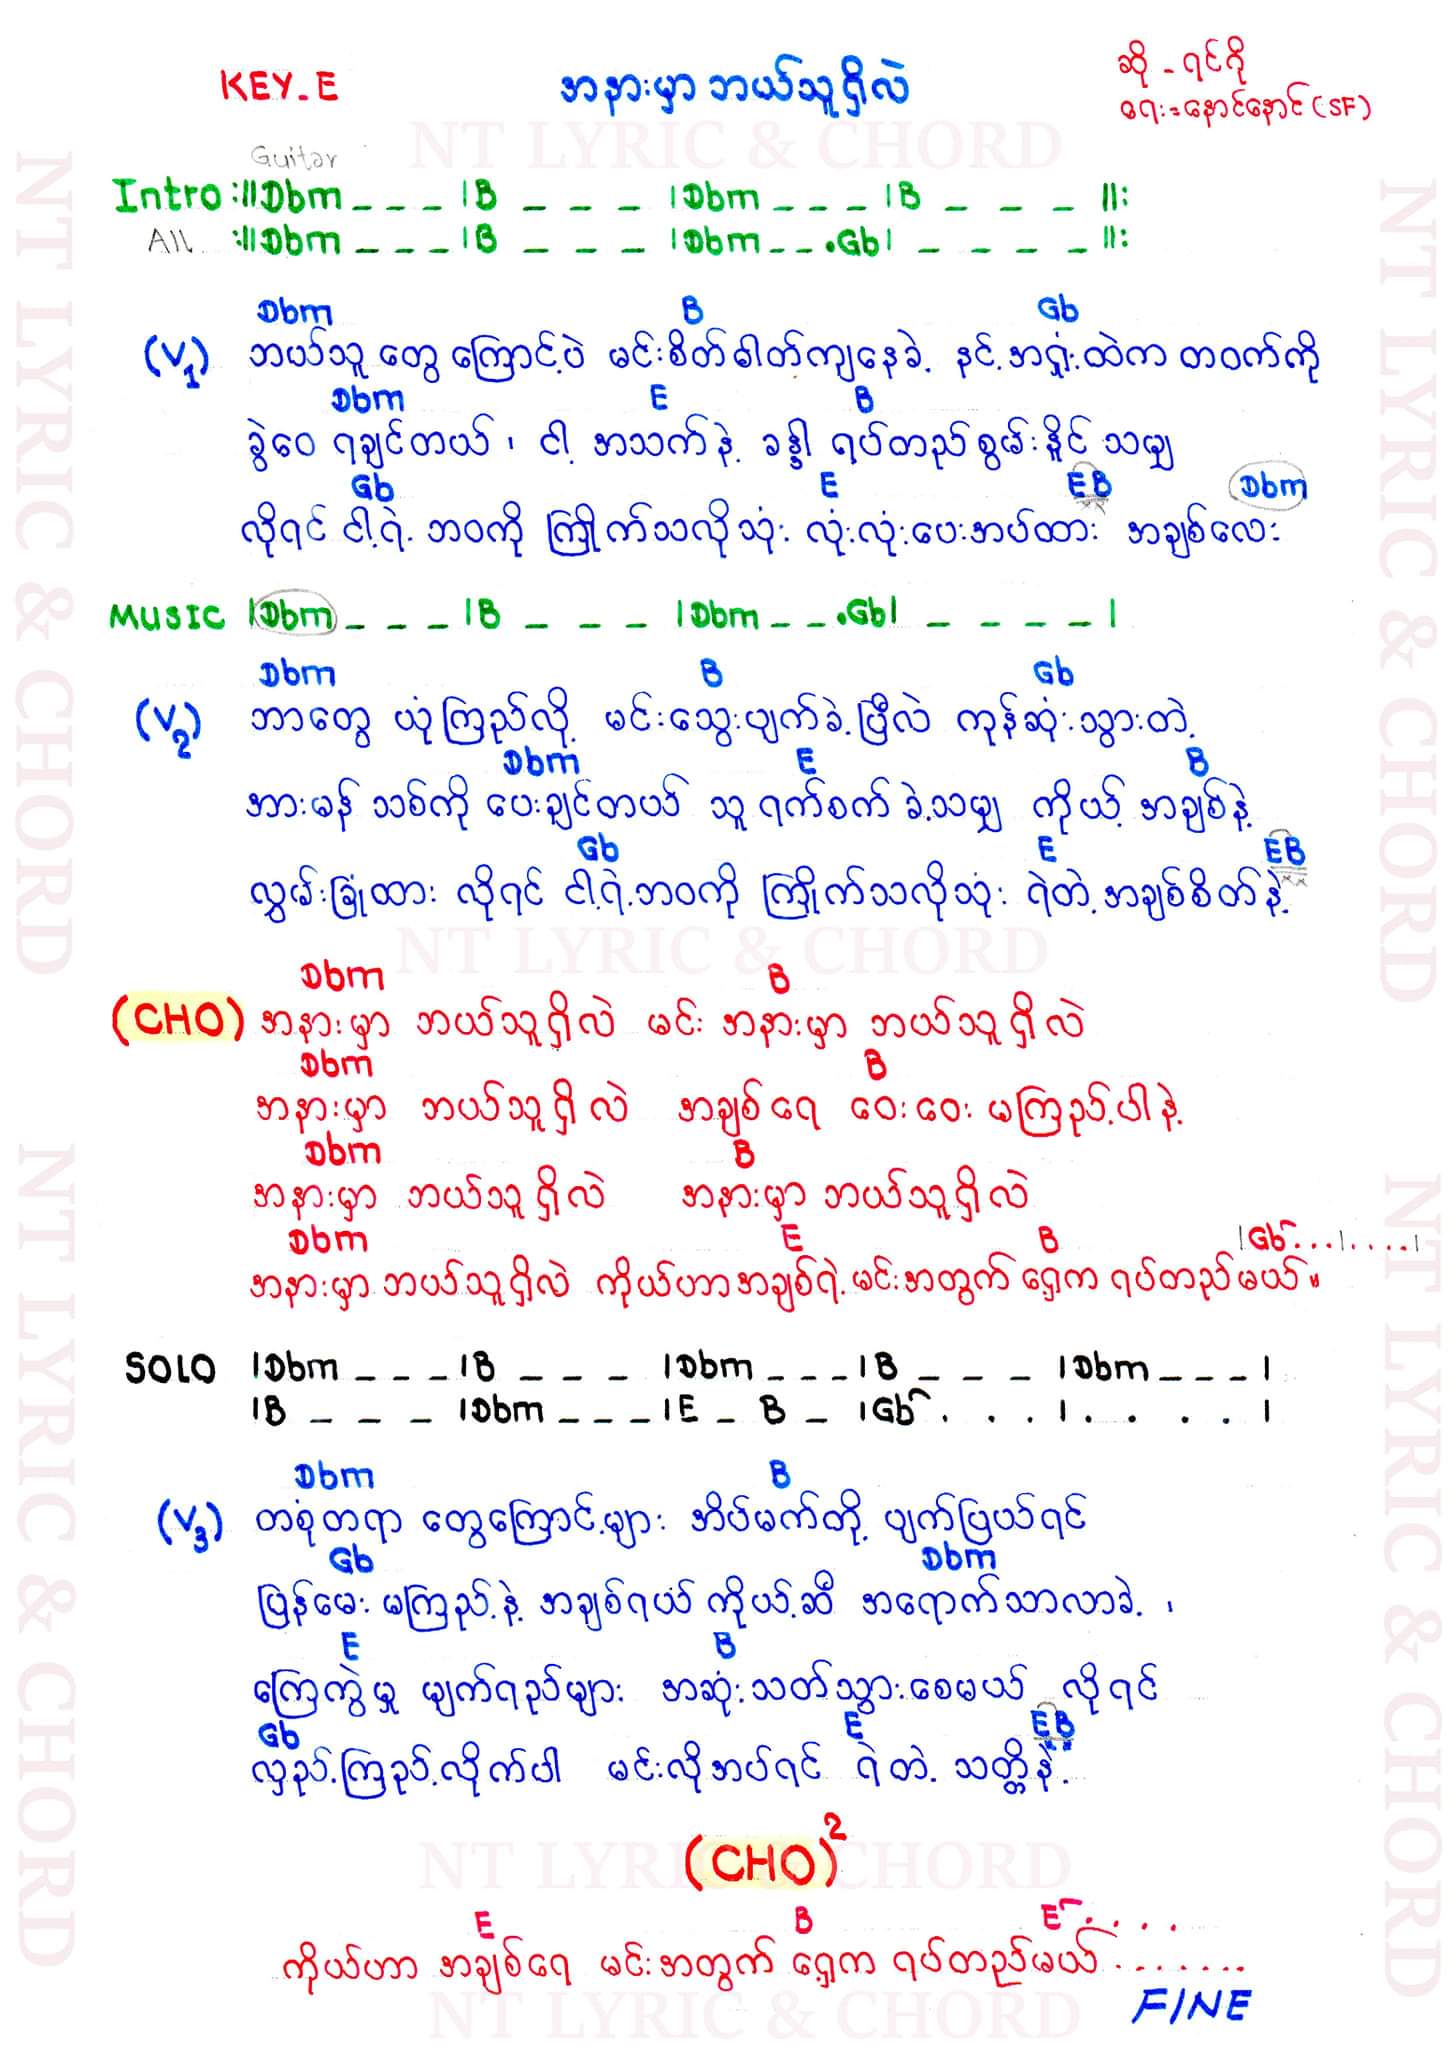 KEY_E
အနားမှာ ဘယ်သူရှိလဲ
ဆို - ရင်ဂို
ရေး = နောင်နောင် (SF)
Guitar
Intro :||Dbm _ _ _ |B _ _ _ |Dbm _ _ _ |B _ _ _ ||:
All :||Dbm _ _ _ |B _ _ _ |Dbm _ _ .Gb| _ _ _ _ ||:
Dbm B Gb
(V1) ဘယ်သူ တွေ ကြောင့်ပဲ မင်းစိတ်ဓါတ်ကျနေခဲ့ နင့်အရှုံးထဲက တဝက်ကို
Dbm E B
ခွဲဝေ ရချင်တယ် ၊ ငါ့ အသက်နဲ့ ခန္ဓါ ရပ်တည်စွမ်းနိူင် သမျှ
Gb E EB Dbm
လိုရင် ငါ့ရဲ့ ဘဝကို ကြိုက်သလိုသုံး လုံးလုံးပေးအပ်ထား အချစ်လေး
MUSIC |Dbm _ _ _ |B _ _ _ |Dbm _ _ .Gb| _ _ _ _ |
Dbm B Gb
(V2) ဘာတွေ ယုံကြည်လို့ မင်းသွေးပျက်ခဲ့ပြီလဲ ကုန်ဆုံးသွားတဲ့
Dbm E B
အားမန် သစ်ကို ပေးချင်တယ် သူ ရက်စက် ခဲ့သမျှ ကိုယ့် အချစ်နဲ့
Gb E EB
လွှမ်းခြုံထား လိုရင် ငါ့ရဲ့ဘဝကို ကြိုက်သလိုသုံး ရဲတဲ့အချစ်စိတ်နဲ့
Dbm B
(CHO) အနားမှာ ဘယ်သူရှိလဲ မင်း အနားမှာ ဘယ်သူရှိလဲ
Dbm B
အနားမှာ ဘယ်သူရှိလဲ အချစ်ရေ ဝေးဝေး မကြည့်ပါနဲ့
Dbm B
အနားမှာ ဘယ်သူရှိလဲ အနားမှာ ဘယ်သူရှိလဲ
Dbm E B |Gb . . . | . . . . |
အနားမှာ ဘယ်သူရှိလဲ ကိုယ်ဟာအချစ်ရဲ့ မင်းအတွက် ရှေ့က ရပ်တည်မယ်။
SOLO |Dbm _ _ _ |B _ _ _ |Dbm _ _ _ |B _ _ _ |Dbm _ _ _ |
|B _ _ _ |Dbm _ _ _ |E _ B _ |Gb . . . | . . . . |
Dbm B
(V3) တစုံတရာ တွေကြောင့်များ အိပ်မက်တို့ ပျက်ပြယ်ရင်
Gb Dbm
ပြန်မေး မကြည့်နဲ့ အချစ်ရယ် ကိုယ့်ဆီ အရောက်သာလာခဲ့ ၊
E B
ကြေကွဲမှု မျက်ရည်များ အဆုံးသတ်သွားစေမယ် လိုရင်
Gb E EB
လှည့်ကြည့်လိုက်ပါ မင်းလိုအပ်ရင် ရဲတဲ့ သတ္တိနဲ့
(CHO)2
E B E . . . .
ကိုယ်ဟာ အချစ်ရေ မင်းအတွက် ရှေ့က ရပ်တည်မယ် . . . . . . .
FINE
NT LYRIC & CHORD
NT LYRIC & CHORD
NT LYRIC & CHORD
NT LYRIC & CHORD
NT LYRIC & CHORD
NT LYRIC & CHORD
NT LYRIC & CHORD
NT LYRIC & CHORD